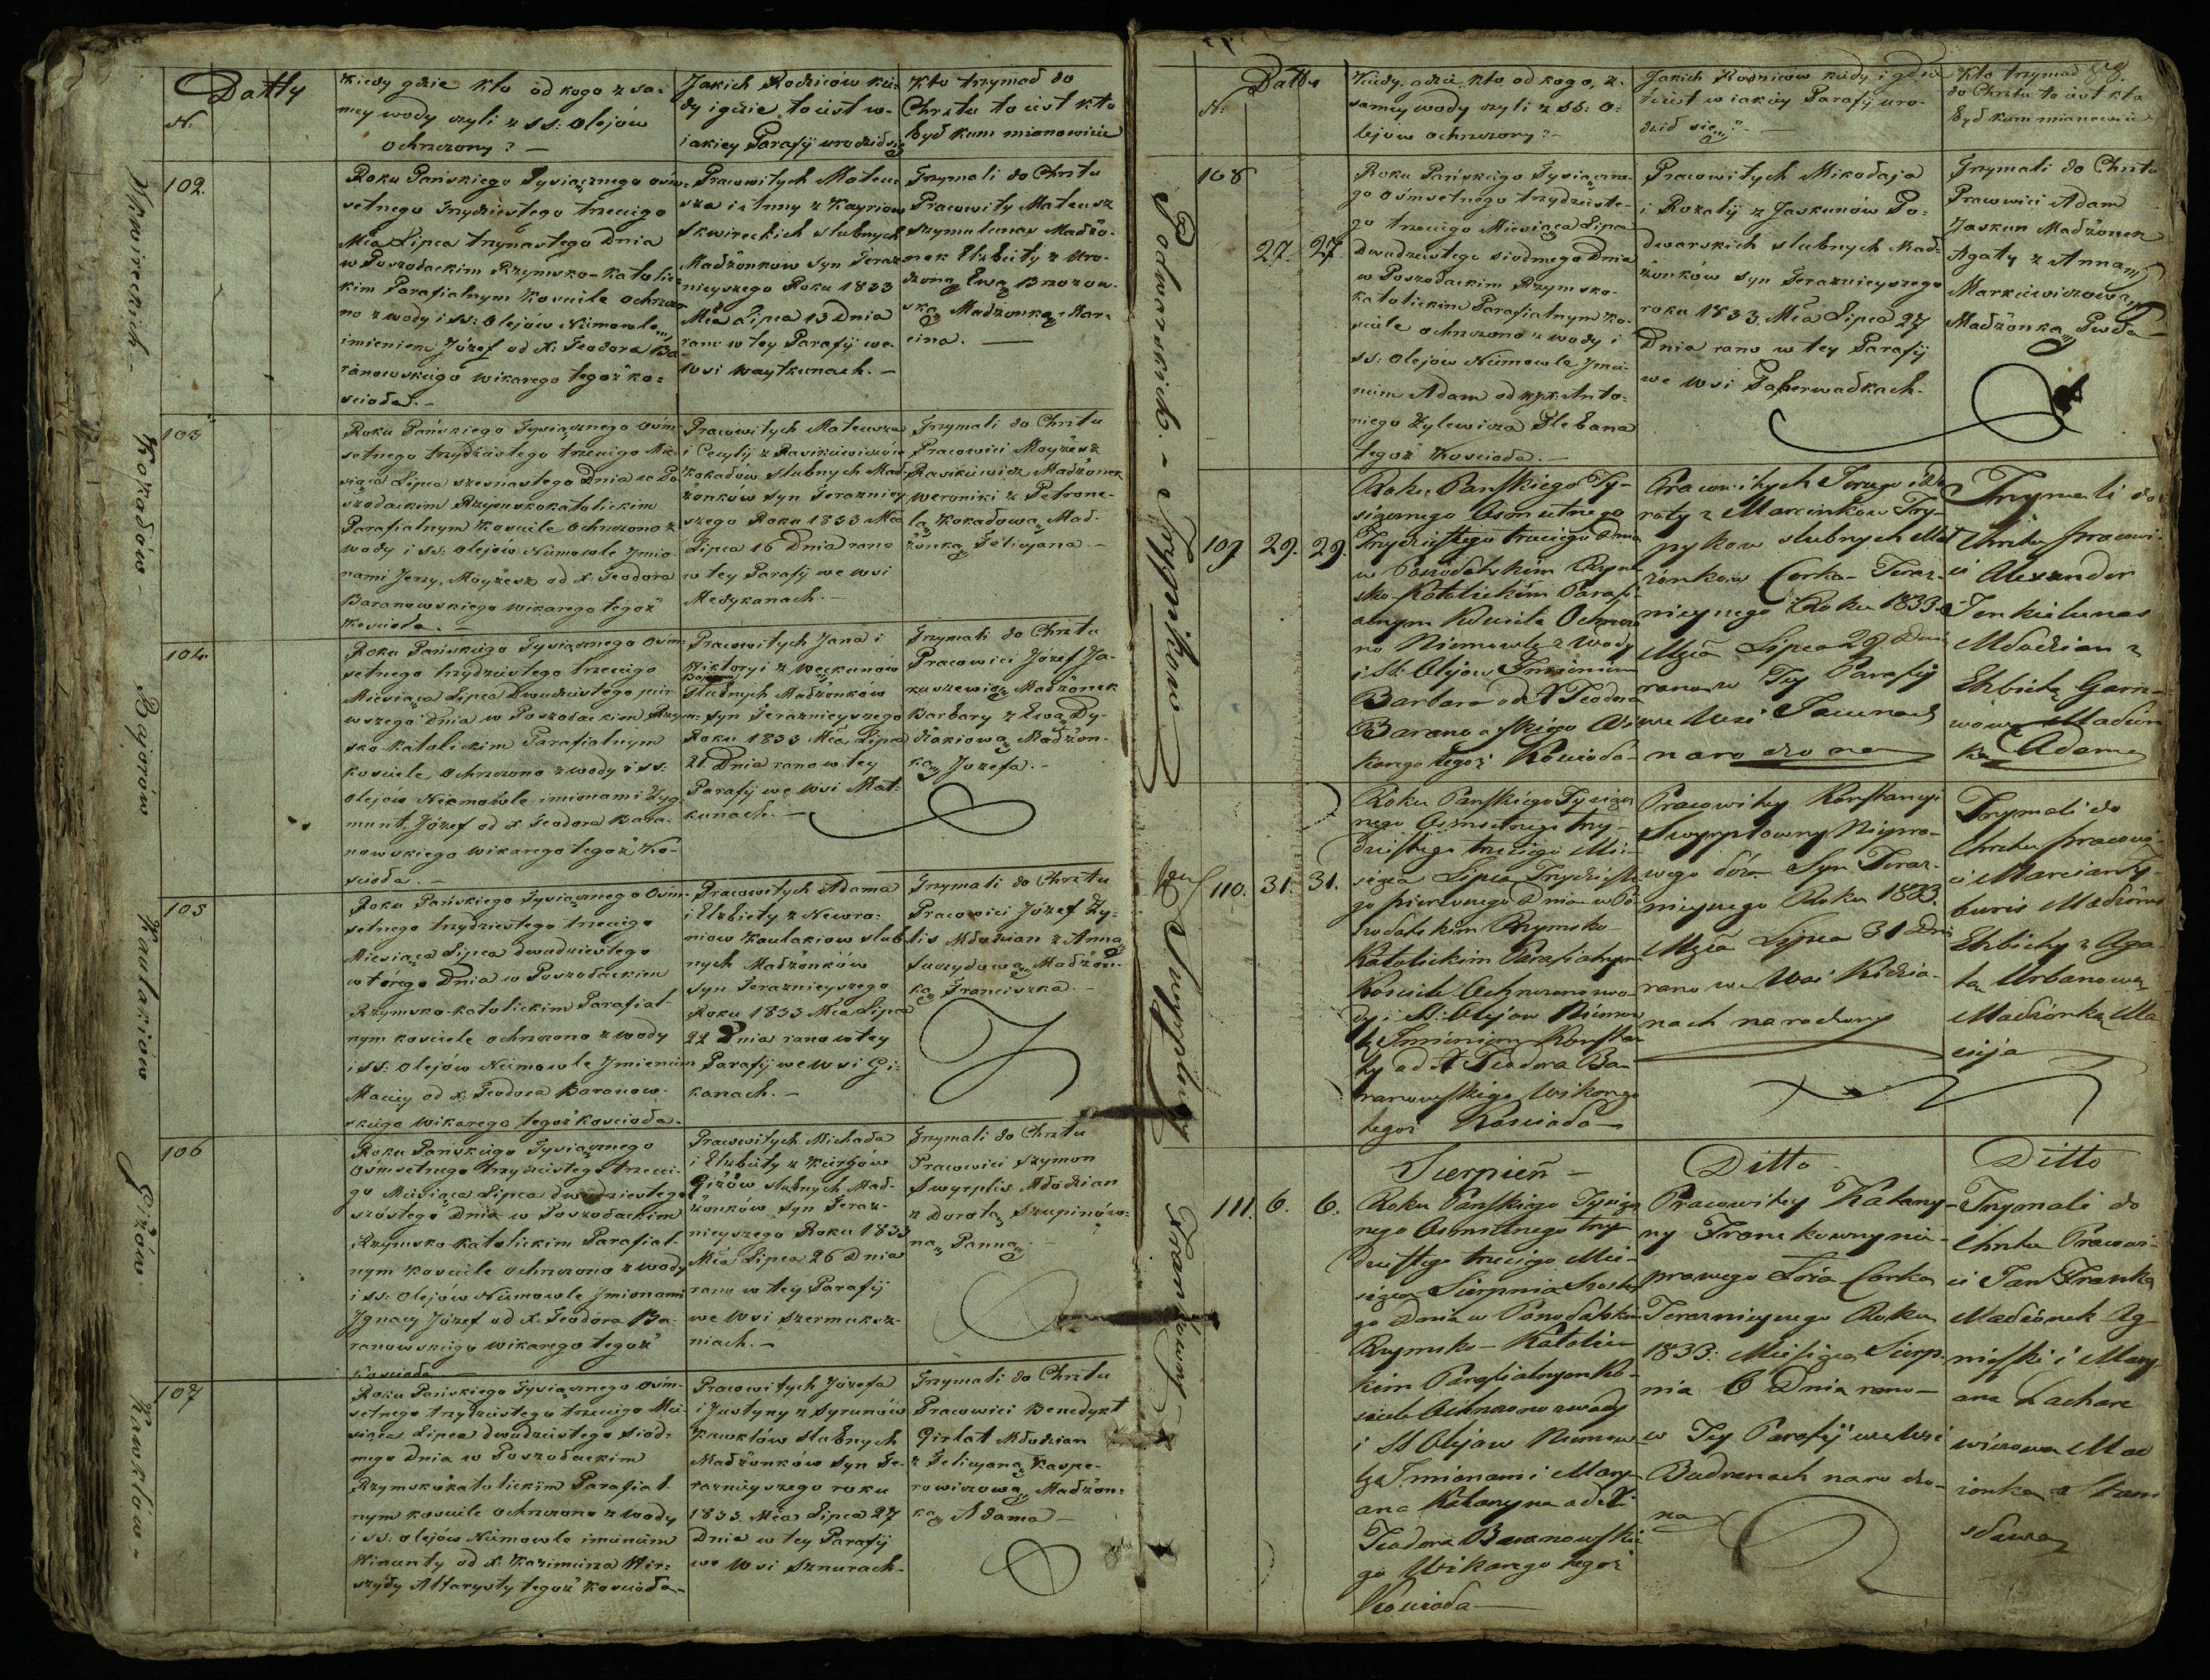 Datty
N.
Kiedy gdzie kto od kogo z sa-
mey wody czyli z ss: olejów
ochrzczony? —
Jakich Rodziców kie-
dy i gdzie to iest w-
iakiey Parafij urodził się
Kto trzymał do
Chrztu to iest kto
był kum mianowicie
Skwireckich -
102.
Roku Pańskiego Tysiącznego ośm-
setnego trzydziestego trzeciego
Mca Lipca trzynastego Dnia
w Poszołackim Rzymsko-Katolic-
kim Parafialnym Kosciele ochrzczo-
no z wody i ss: Olejów Niemowle
imieniem Józef od X: Teodora Ba-
ranowskiego wikarego tegoż ko-
scioła. -
Pracowitych Mateu-
sza i Anny z
Skwireckich slubnych
Madżonkow Syn Teraz-
nieyszego Roku 1833
Mca Lipca 13 Dnia
rano w tey Parafij we
wsi Waytkunach. -
Trzymali do Chrztu
Pracowity Mateusz
Szymulunas Madżo-
nek Elzbiety z Uro-
dzoną Ewą Brozow-
ską Madzonką Mar-
cina. —
Kokadów -
103
Roku Pańskiego Tysiącznego ośm-
setnego trzydziestego trzeciego Mie-
siąca Lipca szesnastego Dnia w Po-
szołackim Rzymskokatolickim
Parafialnym Kosciele ochrzczono z
wody i ss: olejów Niemowle Jmio-
nami Jerzy, Moyżesz od X. Teodora
Baranowskiego wikarego tegoż
Koscioła. -
Pracowitych Mateusza
i Cecylij z Rawikiewiczów
Kokadów slubnych Mad-
żonków Syn Terazniey-
szego Roku 1833 Mca
Lipca 16 Dnia rano
w tey Parafij we wsi
Medykanach. -
Trzymali do Chrztu
Pracowici Moyżesz
Rawikiewicz Madżonek
Weroniki z Petrone-
lą Kokadową Mad-
żonką Felicyana. -
Bajorów
104.
Roku Pańskiego Tysiącznego ośm-
setnego trzydziestego trzeciego
Miesiąca Lipca Dwudziestego pier-
wszego Dnia w Poszołackim Rzym-
sko-katolickim Parafialnym
kosciele ochrzczono z wody i ss:
olejów Niemowle imionami Zyg-
munt, Józef od X Teodora Bara-
nowskiego wikarego tegoż Ko-
scioła. -
Pracowitych Jana i
Wiktoryi z Weckunów
Bajorów
slubnych Madżonków
Syn Teraznieyszego
Roku 1833 Mca Lipca
21 Dnia rano w tey
Parafij we wsi Mat-
kunach. -
Trzymali do Chrztu
Pracowici Józef Ja-
kuszewicz Madżonek
Barbary z Ewą Dy-
dżokiową Madżon-
ką Jozefa. -
Kaulakiów
105
Roku Pańskiego Tysiącznego Ośm-
setnego trzydziestego trzeciego
Miesiąca Lipca dwudziestego
wtórego Dnia w Poszołackim
Rzymsko-katolickim Parafial-
nym kosciele ochrzczono z wody
i ss: olejów Niemowle Jmieniem
Maciey od X: Teodora Baranow-
skiego wikarego tegoż koscioła. -
Pracowitych Adama
i Elzbiety z Newro-
niow Kaulakiow slub-
nych Madżonków
Syn Teraznieyszego
Roku 1833 Mca Lipca
22 Dnia rano w tey
Parafij we wsi Gi-
kanach. -
Trzymali do Chrztu
Pracowici Józef Zy-
lis Młodzian z Anną
Suczydową Madżon-
ką Franciszka. -
Giżów.
106
Roku Pańskiego Tysiącznego
Osmsetnego trzydziestego trzecie-
go Miesiąca Lipca dwudziestego
szóstego Dnia w Poszołackim
Rzymsko katolickim Parafial-
nym Kosciele ochrzczono z wody
i ss: olejów Niemowle Jmionami
Jgnacy Józef od X. Teodora Ba-
ranowskiego wikarego tegoż
Koscioła. -
Pracowitych Michała
i Elzbiety z Kiirszów
Giżów slubnych Mad-
żonków Syn Teraz-
nieyszego Roku 1833
Mca Lipca 26 Dnia
rano w tey Parafij
we wsi Szermuksz-
niach. -
Trzymali do Chrztu
Pracowici Szymon
Swyrplis Młodzian
z Dorotą Szupinów-
ną Panną. -
Kawktów -
107
Roku Pańskiego Tysiącznego ośm-
setnego trzydziestego trzeciego Mie-
siąca Lipca dwudziestego siod-
mego Dnia w Poszołackim
Rzymskokatolickim Parafial-
nym kosciele ochrzczono z wody
i ss: olejów Niemowle imieniem
Winenty od X: Kazimierza Wir-
szyły Altarysty tegoż koscioła -
Pracowitych Józefa
i Justyny z Syrunów
Kawktów slubnych
Madżonków Syn Te-
raznieyszego roku
1833. Mca Lipca 27
Dnia w tey Parafij
we wsi Sznurach -
Trzymali do Chrztu
Pracowici Benedykt
Girłat Młodzian
z Felicyaną Kaspe-
rowiczową Madżon-
ką Adama —
Datta
N:
Kiedy gdzie, kto, od kogo, z-
samey wody czyli z ss: O-
lejów ochrzczony? -
Jakich Rodziców kiedy i gdzie
to iest w iakiey Parafij uro-
dził się? -
Kto trzymał
do Chrztu to iest kto
był kum mianowicie
88.
Podwarskich. -
108
27. 27.
Roku Pańskiego Tysiączne-
go ośmsetnego trzydzieste-
go trzeciego Miesiąca Lipca
Dwudziestego siodmego Dnia
w Poszołackim Rzymsko-
katolickim Parafialnym Ko-
sciele ochrzczono z wody i
ss: olejow Niemowle Jmie-
niem Adam od X. Anto-
niego Żylewicza Plebana
tegoż Koscioła. -
Pracowitych Mikołaja
i Rozalij z Jaskunów Po-
dwarskich slubnych Mad-
żonków Syn Teraznieyszego
roku 1833 Mca Lipca 27
Dnia rano w tey Parafij
we wsi Poberwałkach. -
Trzymali do Chrztu
Pracowici Adam
Jaskun Madżonek
Agaty z Anną
Markiewiczową
Madżonką
Trypików
109
29. 29.
Roku Panskiego Ty-
siącznego Osmsetnego
Trzydziestego trzeciego Dnia
w Poszołatskim Rzym-
sko-Katolickim Parafi-
alnym Kosciele Ochrzczo-
no Niemowle z Wody
i SS. Olejow Jmieniem
Barbara od X Teodora
Baranowskiego Wi-
karego tegoż Koscioła -
Pracowitych Jerzego i Do-
roty z Marcinkow Try-
pykow slubnych Mał-
żonkow Corka Teraz-
nieyszego Roku 1833
Mca Lipca 29 Dnia
rano w Tey Parafij
we Wsi
narodzona
Trzymali do
Chrztu pracowi-
ci Alexander
Jenkielunas
Młodzian z
Elzbietą
Madżon-
ką Adama
Swyrplowny
110.
31. 31.
Roku Panskiego Tysiącz-
nego Osmsetnego trzy-
dziestego trzeciego Mie-
siąca Lipca Trzydzieste-
go pierwszego Dnia w Po-
szołatskim Rzymsko-
Katolickim Parafialnym
Kosciele Ochrzczono z wo-
dy i SS: Olejow Niemow-
le Jmieniem Konstan-
ty od X Teodora Ba-
ranowskiego Wikarego
tegoż Koscioła -
Pracowitey Konstancyi
Swyrplowny Niepra-
wego Łóża Syn Teraz-
nieyszego Roku 1833.
Mca Lipca 31 Dnia
rano we Wsi Kidzia-
nach narodzony
Trzymali do
Chrztu pracowi-
ci Marcian
Madżonek
Elzbiety z Aga-
tą Urbanową
Madżonką Ma-
cieja
Frankówny
Sierpień -
Ditto
Ditto
111.
6. 6.
Roku Panskiego Tysiącz-
nego Osmsetnego trzy-
dziestego trzeciego Mie-
siąca Sierpnia Szoste-
go Dnia w Poszołatskim
Rzymsko-Katolic-
kim Parafialnym Ko-
sciele Ochrzczono z wody
i SS Olejow Niemow-
le Jmionami Mary-
ana Katarzyna od X:
Teodora Baranowskie-
go Wikarego tegoż
Koscioła —
Pracowitey Katarzy-
ny Frankowny nie-
prawego Łoża Corka
Teraznieyszego Roku
1833: Miesiąca Sierp-
nia 6 Dnia rano -
w Tey Parafij we Wsi
Budrenach narodzo-
na
Trzymali do
Chrztu Pracowi-
ci Jan Franka
Madżonek Ag-
nieski i Mary-
ana Lachare-
wiczowa Mad-
żonka Stani-
sława